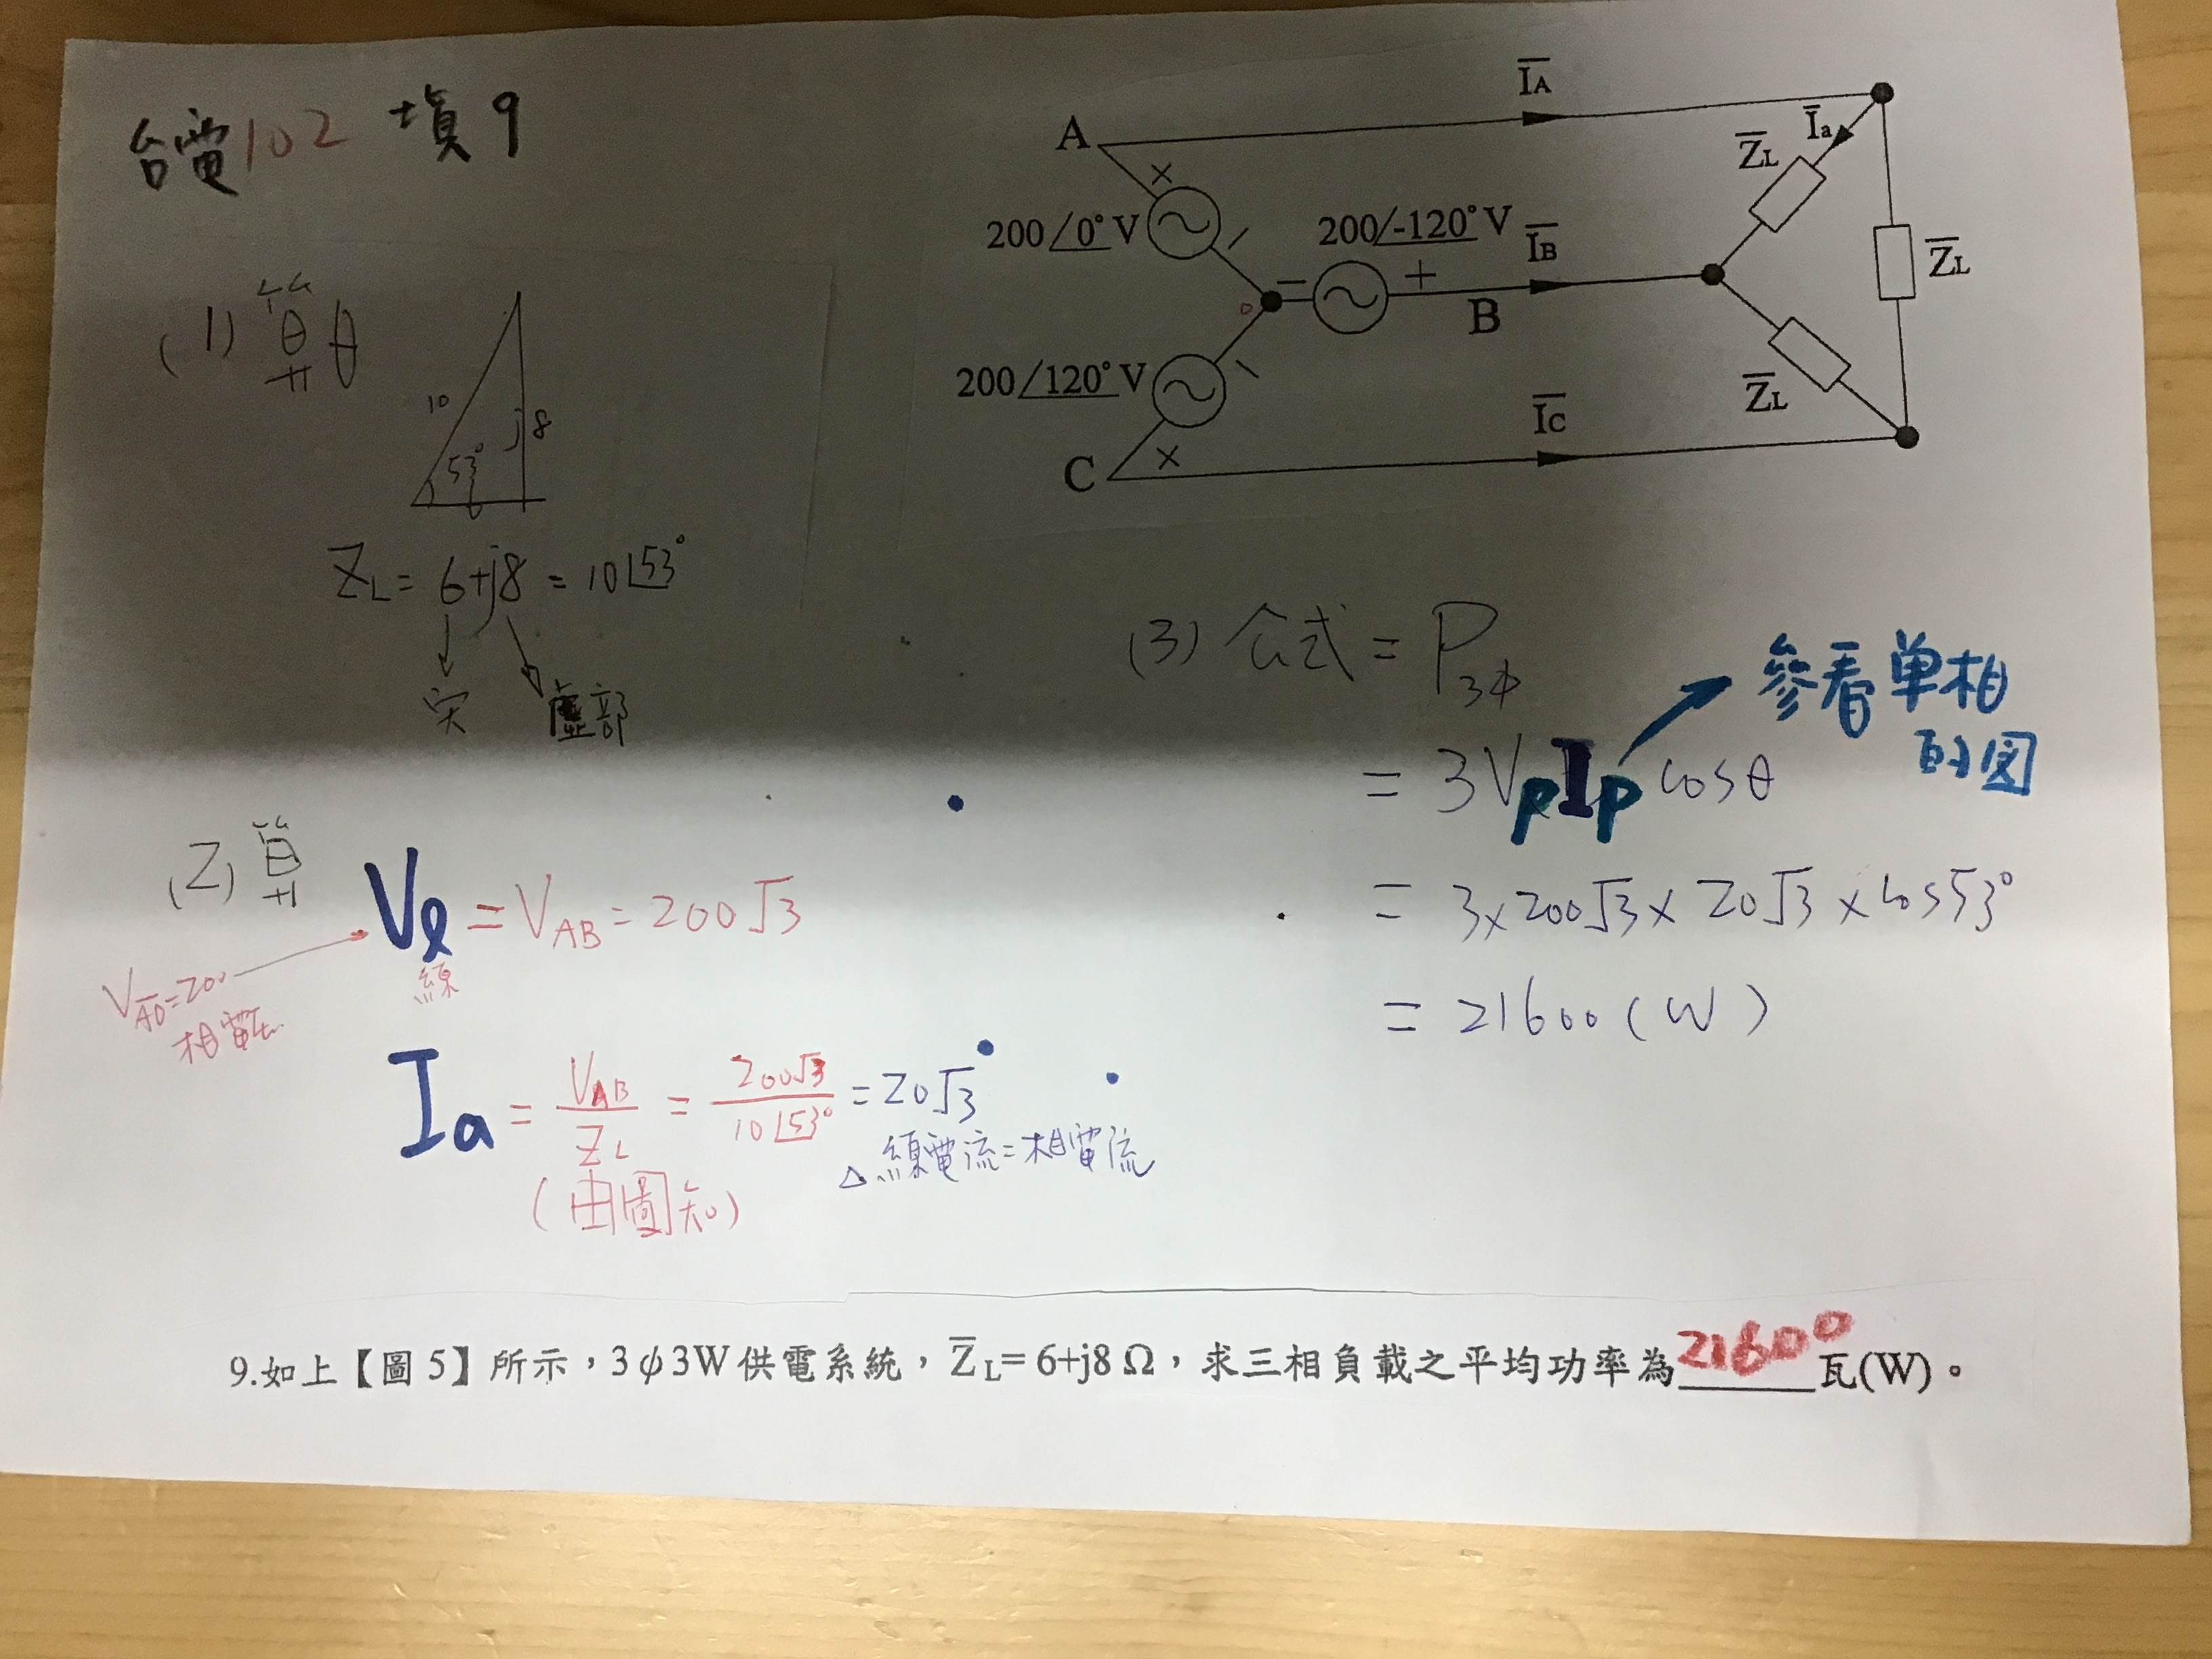 台電102 填9
A
ĪA
Īa
Z̄L
200∠0° V
200∠-120° V
+
−
ĪB
B
Z̄L
200∠120° V
C
ĪC
Z̄L
(1) 算θ
10
j8
53°
6
ZL = 6+j8 = 10∠53°
实 虛部
(2) 算 Vℓ = VAB = 200√3
線
VA̅O̅=200
相電压
Ia = VAB/ZL = 200√3/10∠53° = 20√3
(由圖知)
△ 線電流=相電流
(3) 公式 = P3φ
= 3VpIp cosθ
參看单相
的図
= 3×200√3×20√3×cos53°
= 21600 (W)
9.如上【圖 5】所示，3φ3W供電系統，Z̄L= 6+j8 Ω，求三相負載之平均功率為21600瓦(W)。